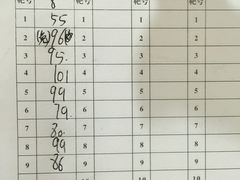 8
1 55 1 1 1
2 96 2 2 2
3 95. 3 3 3
4 101 4 4 4
5 99 5 5 5
6 79. 6 6 6
7 80 7 7 7
8 99 8 8 8
9 86 9 9 9